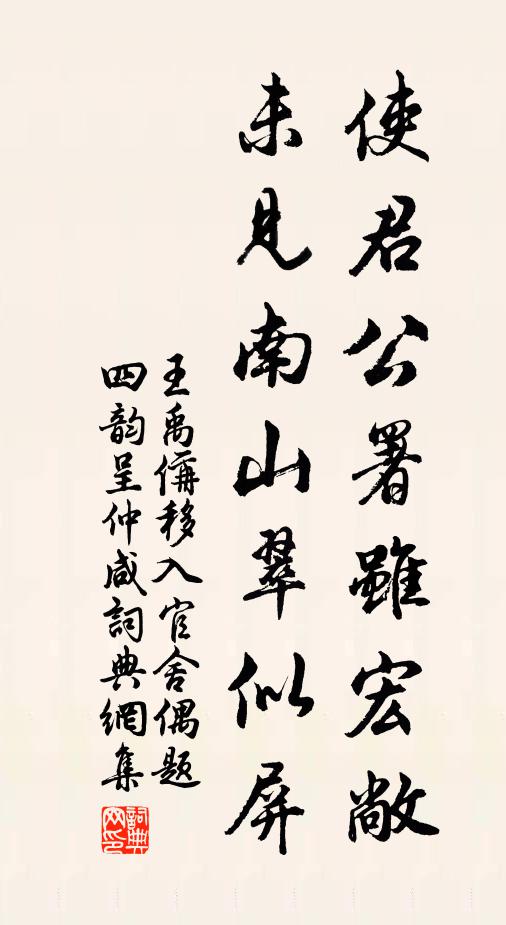 使君公署雖宏敞
未見南山翠似屏
王禹偁移入官舍偶题
四韵呈仲咸詞典網集
詞典
网印